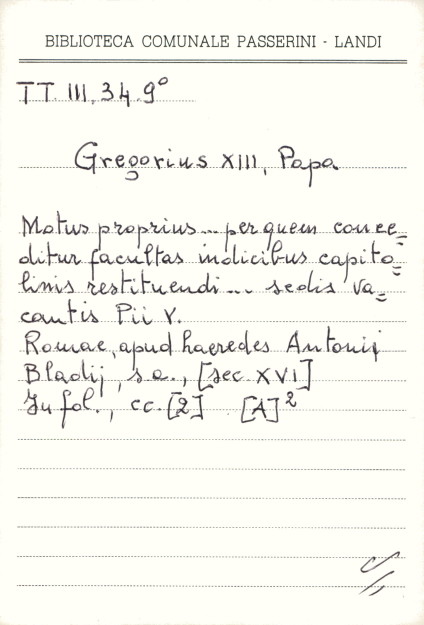 BIBLIOTECA COMUNALE PASSERINI - LANDI
TT. III. 34, 9°
Gregorius XIII, Papa
Motus proprius... per quem conce=
ditur facultas indicibus capito=
linis restituendi... sedis va=
cantis Pii V.
Romae, apud haeredes Antonij
Bladij, s.a., [sec. XVI]
In fol., cc. [2] [A]²